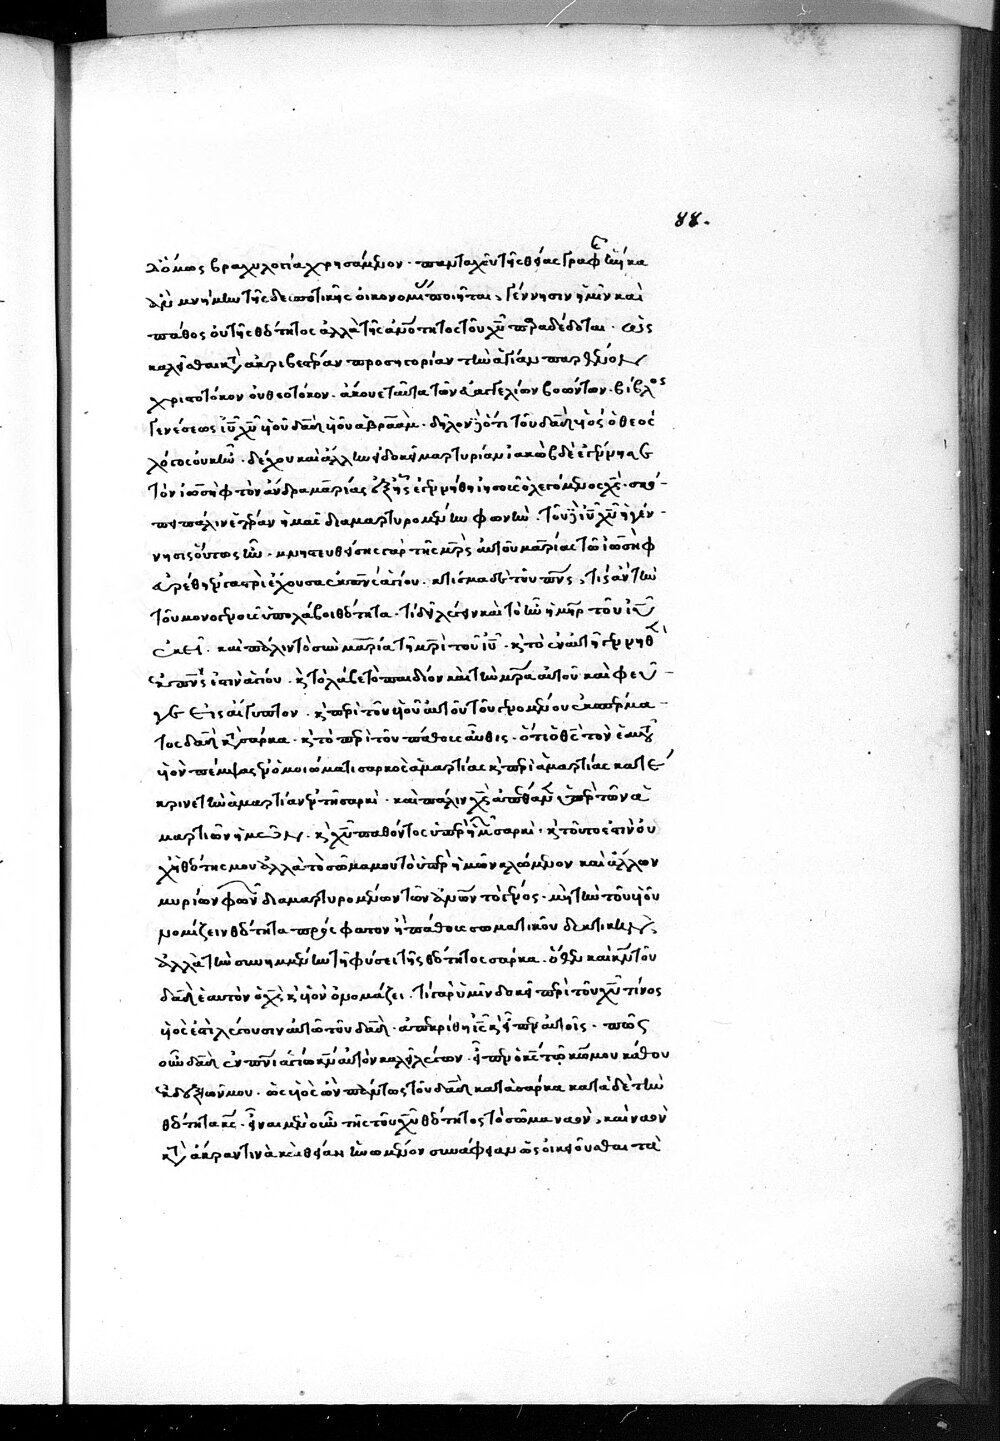 λόμως βραχυλογία χρησάμενον. πανταχοῦ τῆς θείας γραφῆς ἡνίκα
ἂν μνήμην τῆς δεσποτικῆς οἰκονομίας ποιῆται, γέννησιν ἡμῖν καὶ
πάθος οὐ τῆς θεότητος ἀλλὰ τῆς ἀνθρωπότητος τοῦ χυ παραδέδοται. ὡς
καλεῖσθαι κατ ἀκριβεστέραν προσηγορίαν τὴν ἁγίαν παρθένον
χριστοτόκον οὐ θεοτόκον. ἄκουε ταῦτα τῶν εὐαγγελίων βοώντων. βίβλος
γενέσεως ιυ χυ υἱοῦ δαδ υἱοῦ ἀβραάμ. δῆλον δὲ ὅτι τοῦ δαδ υἱὸς ὁ θεὸς
λόγος οὐκ ἦν. δέχου καὶ ἄλλην εἰ δοκεῖ μαρτυρίαν ἰακὼβ δὲ ἐγέννησε
τὸν ἰωσὴφ τὸν ἄνδρα μαρίας ἐξ ἧς ἐγεννήθη ἰησοῦς ὁ λεγόμενος χς. σκό-
πει πάλιν ἑτέραν ἡμᾶς διαμαρτυρομένην φωνὴν. τοῦ δὲ ιυ χυ ἡ γέν-
νησις οὕτως ἦν. μνηστευθείσης γὰρ τῆς μρς αὐτοῦ μαρίας τῶ ἰωσὴφ
εὑρέθη ἐν γαστρὶ ἔχουσα ἐκ πνς ἁγίου. κτίσμα δὲ τοῦ πνς, τίς ἂν τὴν
τοῦ μονογενοῦς ὑπολάβοι θεότητα. τί δεῖ λέγειν καὶ τὸ ἦν ἡ μηρ τοῦ ιυ
ἐκεῖ. καὶ πάλιν τὸ σὺν μαρία τῆ μρὶ τοῦ ιυ. κ τὸ ἐν αὐτῆ γεννηθὲν
ἐκ πνς ἐστιν ἁγίου. κ τὸ λάβε τὸ παιδίον καὶ τὴν μρα αὐτοῦ καὶ φεῦ-
γε εἰς αἴγυπτον. κ περὶ τοῦ υἱοῦ αὐτοῦ τοῦ γενομένου ἐκ σπέρμα-
τος δαδ κατὰ σάρκα. κ τὸ περὶ τοῦ πάθους αὖθις. ὅτι ὁ θς τὸν ἑαυτοῦ
υἱὸν πέμψας ἐν ὁμοιώματι σαρκὸς ἁμαρτίας κ περὶ ἁμαρτίας κατέ
κρινε τὴν ἁμαρτίαν ἐν τῆ σαρκὶ. καὶ πάλιν χς ἀπέθανεν ὑπὲρ τῶν ἁ
μαρτιῶν ἡμῶν. κ χυ παθόντος ὑπὲρ ἡμῶν σαρκὶ. κ τοῦτο ἐστὶν οὐ
χὴ θεότης μου ἀλλὰ τὸ σῶμα μου τὸ ὑπὲρ ἡμῶν κλώμενον καὶ ἄλλων
μυρίων φωνῶν διαμαρτυρομένων τῶν ἀνων τὸ γένος. μὴ τὴν τοῦ υἱοῦ
νομίζειν θεότητα πρόσφατον ἢ πάθους σωματικοῦ δεκτικὴν,
ἀλλὰ τὴν συνημμένην τῆ φύσει τῆς θεότητος σάρκα. ὅθεν καὶ κν τοῦ
δαδ ἑαυτὸν ὁ χς κ υἱὸν ὀνομάζει. τί γὰρ ὑμῖν δοκεῖ περὶ τοῦ χυ τίνος
υἱός ἐστι λέγουσιν αὐτῶ τοῦ δαδ. ἀπεκρίθη ις κ εἶπεν αὐτοῖς. πῶς
οὖν δαδ ἐν πνι ἁγίω κν αὐτὸν καλεῖ λέγων. εἶπεν ὁ κς τῶ κω μου κάθου
ἐκ δεξιῶν μου. ὡς υἱὸς ὢν πάντως τοῦ δαδ κατὰ σάρκα κατὰ δὲ τὴν
θεότητα κς. εἶναι μὲν οὖν τῆς τοῦ υἱοῦ θεότητος τὸ σῶμα ναὸν, καὶ ναὸν
κατ ἄκραν τινὰ κ θείαν ἡνωμένον συνάφειαν ὡς οἰκειοῦσθαι τὰ